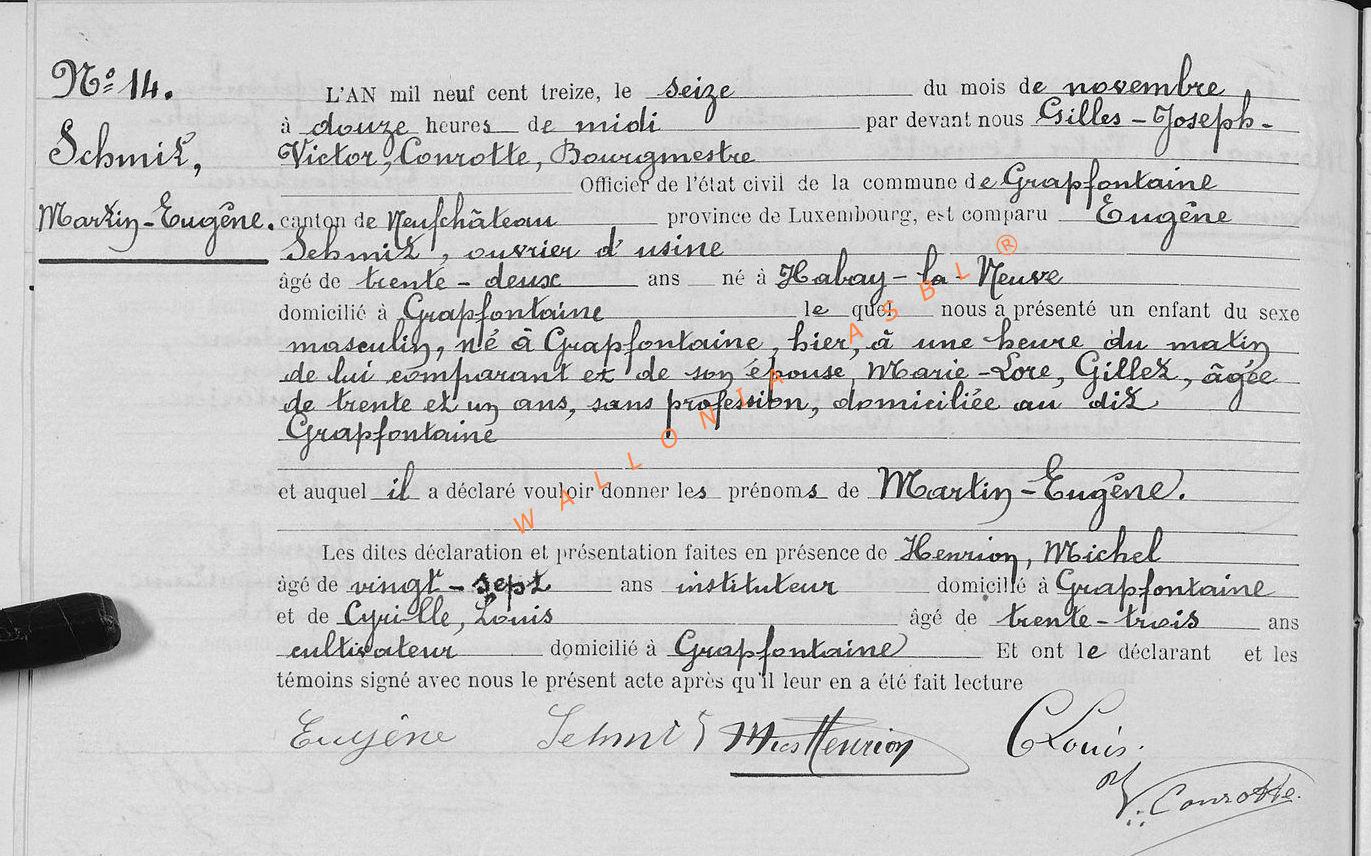 N° 14.
Schmit,
Martin-Eugêne.
L'AN mil neuf cent treize, le seize du mois de novembre
à douze heures de midi par devant nous Gilles-Joseph-
Victor, Conrotte, Bourgmestre
Officier de l'état civil de la commune de Grapfontaine
canton de Neufchâteau province de Luxembourg, est comparu Eugêne
Schmit, ouvrier d'usine
âgé de trente-deux ans né à Habay-la Neuve
domicilié à Grapfontaine le quel nous a présenté un enfant du sexe
masculin, né à Grapfontaine, hier, à une heure du matin
de lui comparant et de son épouse, Marie-Lore, Gillet, âgée
de trente et un ans, sans profession, domiciliée au dit
Grapfontaine
et auquel il a déclaré vouloir donner les prénoms de Martin-Eugêne.
Les dites déclaration et présentation faites en présence de Henrion, Michel
âgé de vingt-sept ans instituteur domicilié à Grapfontaine
et de Cyrille, Louis âgé de trente-trois ans
cultivateur domicilié à Grapfontaine Et ont le déclarant et les
témoins signé avec nous le présent acte après qu'il leur en a été fait lecture
Eugêne Schmit Henrion C Louis.
V. Conrotte.
WALLONIA ASBL ®